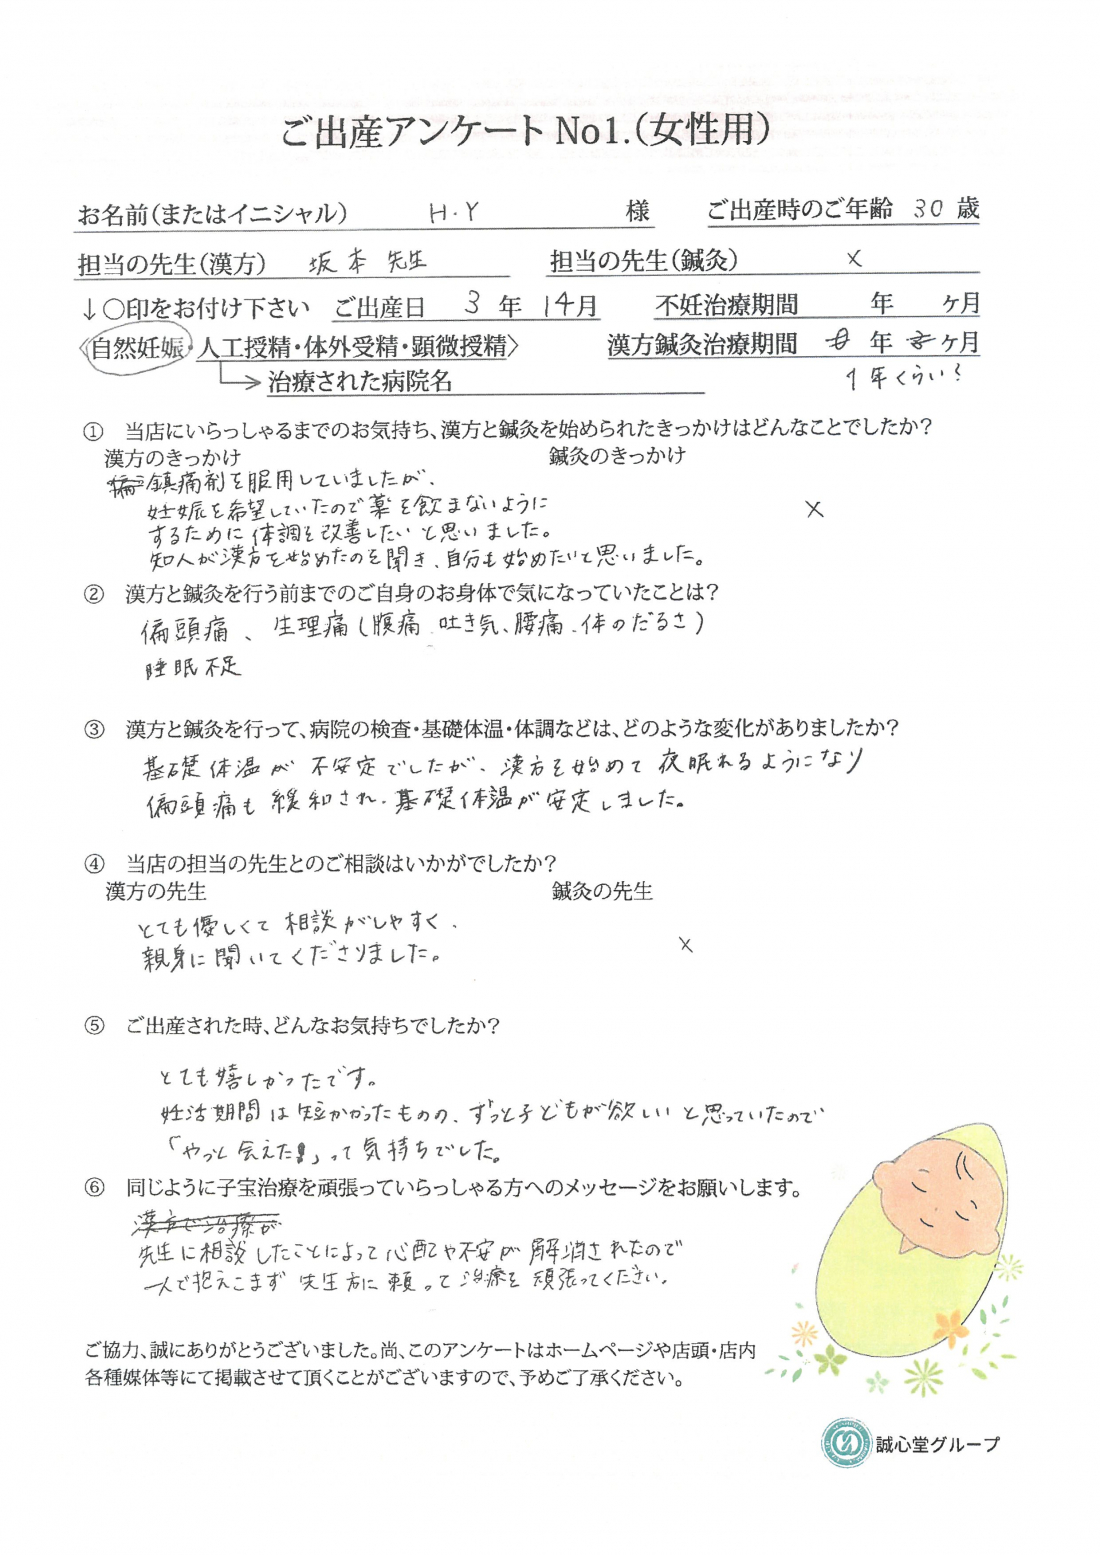 ご出産アンケート No1.(女性用)
お名前(またはイニシャル) H.Y 様 ご出産時のご年齢 30 歳
担当の先生(漢方) 坂本 先生 担当の先生(鍼灸) ×
↓○印をお付け下さい ご出産日 3 年 14月 不妊治療期間 年 ヶ月
〈自然妊娠・人工授精・体外受精・顕微授精〉 漢方鍼灸治療期間 年 ヶ月
1年くらい?
治療された病院名
① 当店にいらっしゃるまでのお気持ち、漢方と鍼灸を始められたきっかけはどんなことでしたか?
漢方のきっかけ 鍼灸のきっかけ
鎮痛剤を服用していましたが、
妊娠を希望していたので薬を飲まないように ×
するために体調を改善したいと思いました。
知人が漢方を始めたのを聞き、自分も始めたいと思いました。
② 漢方と鍼灸を行う前までのご自身のお身体で気になっていたことは?
偏頭痛、生理痛(腹痛、吐き気、腰痛、体のだるさ)
睡眠不足
③ 漢方と鍼灸を行って、病院の検査・基礎体温・体調などは、どのような変化がありましたか?
基礎体温が不安定でしたが、漢方を始めて夜眠れるようになり
偏頭痛も緩和され、基礎体温が安定しました。
④ 当店の担当の先生とのご相談はいかがでしたか?
漢方の先生 鍼灸の先生
とても優しくて相談がしやすく、
親身に聞いてくださりました。 ×
⑤ ご出産された時、どんなお気持ちでしたか?
とても嬉しかったです。
妊活期間は短かかったものの、ずっと子どもが欲しいと思っていたので
「やっと会えた!」って気持ちでした。
⑥ 同じように子宝治療を頑張っていらっしゃる方へのメッセージをお願いします。
漢方で治療が
先生に相談したことによって心配や不安が解消されたので
一人で抱えこまず先生方に頼って治療を頑張ってください。
ご協力、誠にありがとうございました。尚、このアンケートはホームページや店頭・店内
各種媒体等にて掲載させて頂くことがございますので、予めご了承ください。
誠心堂グループ